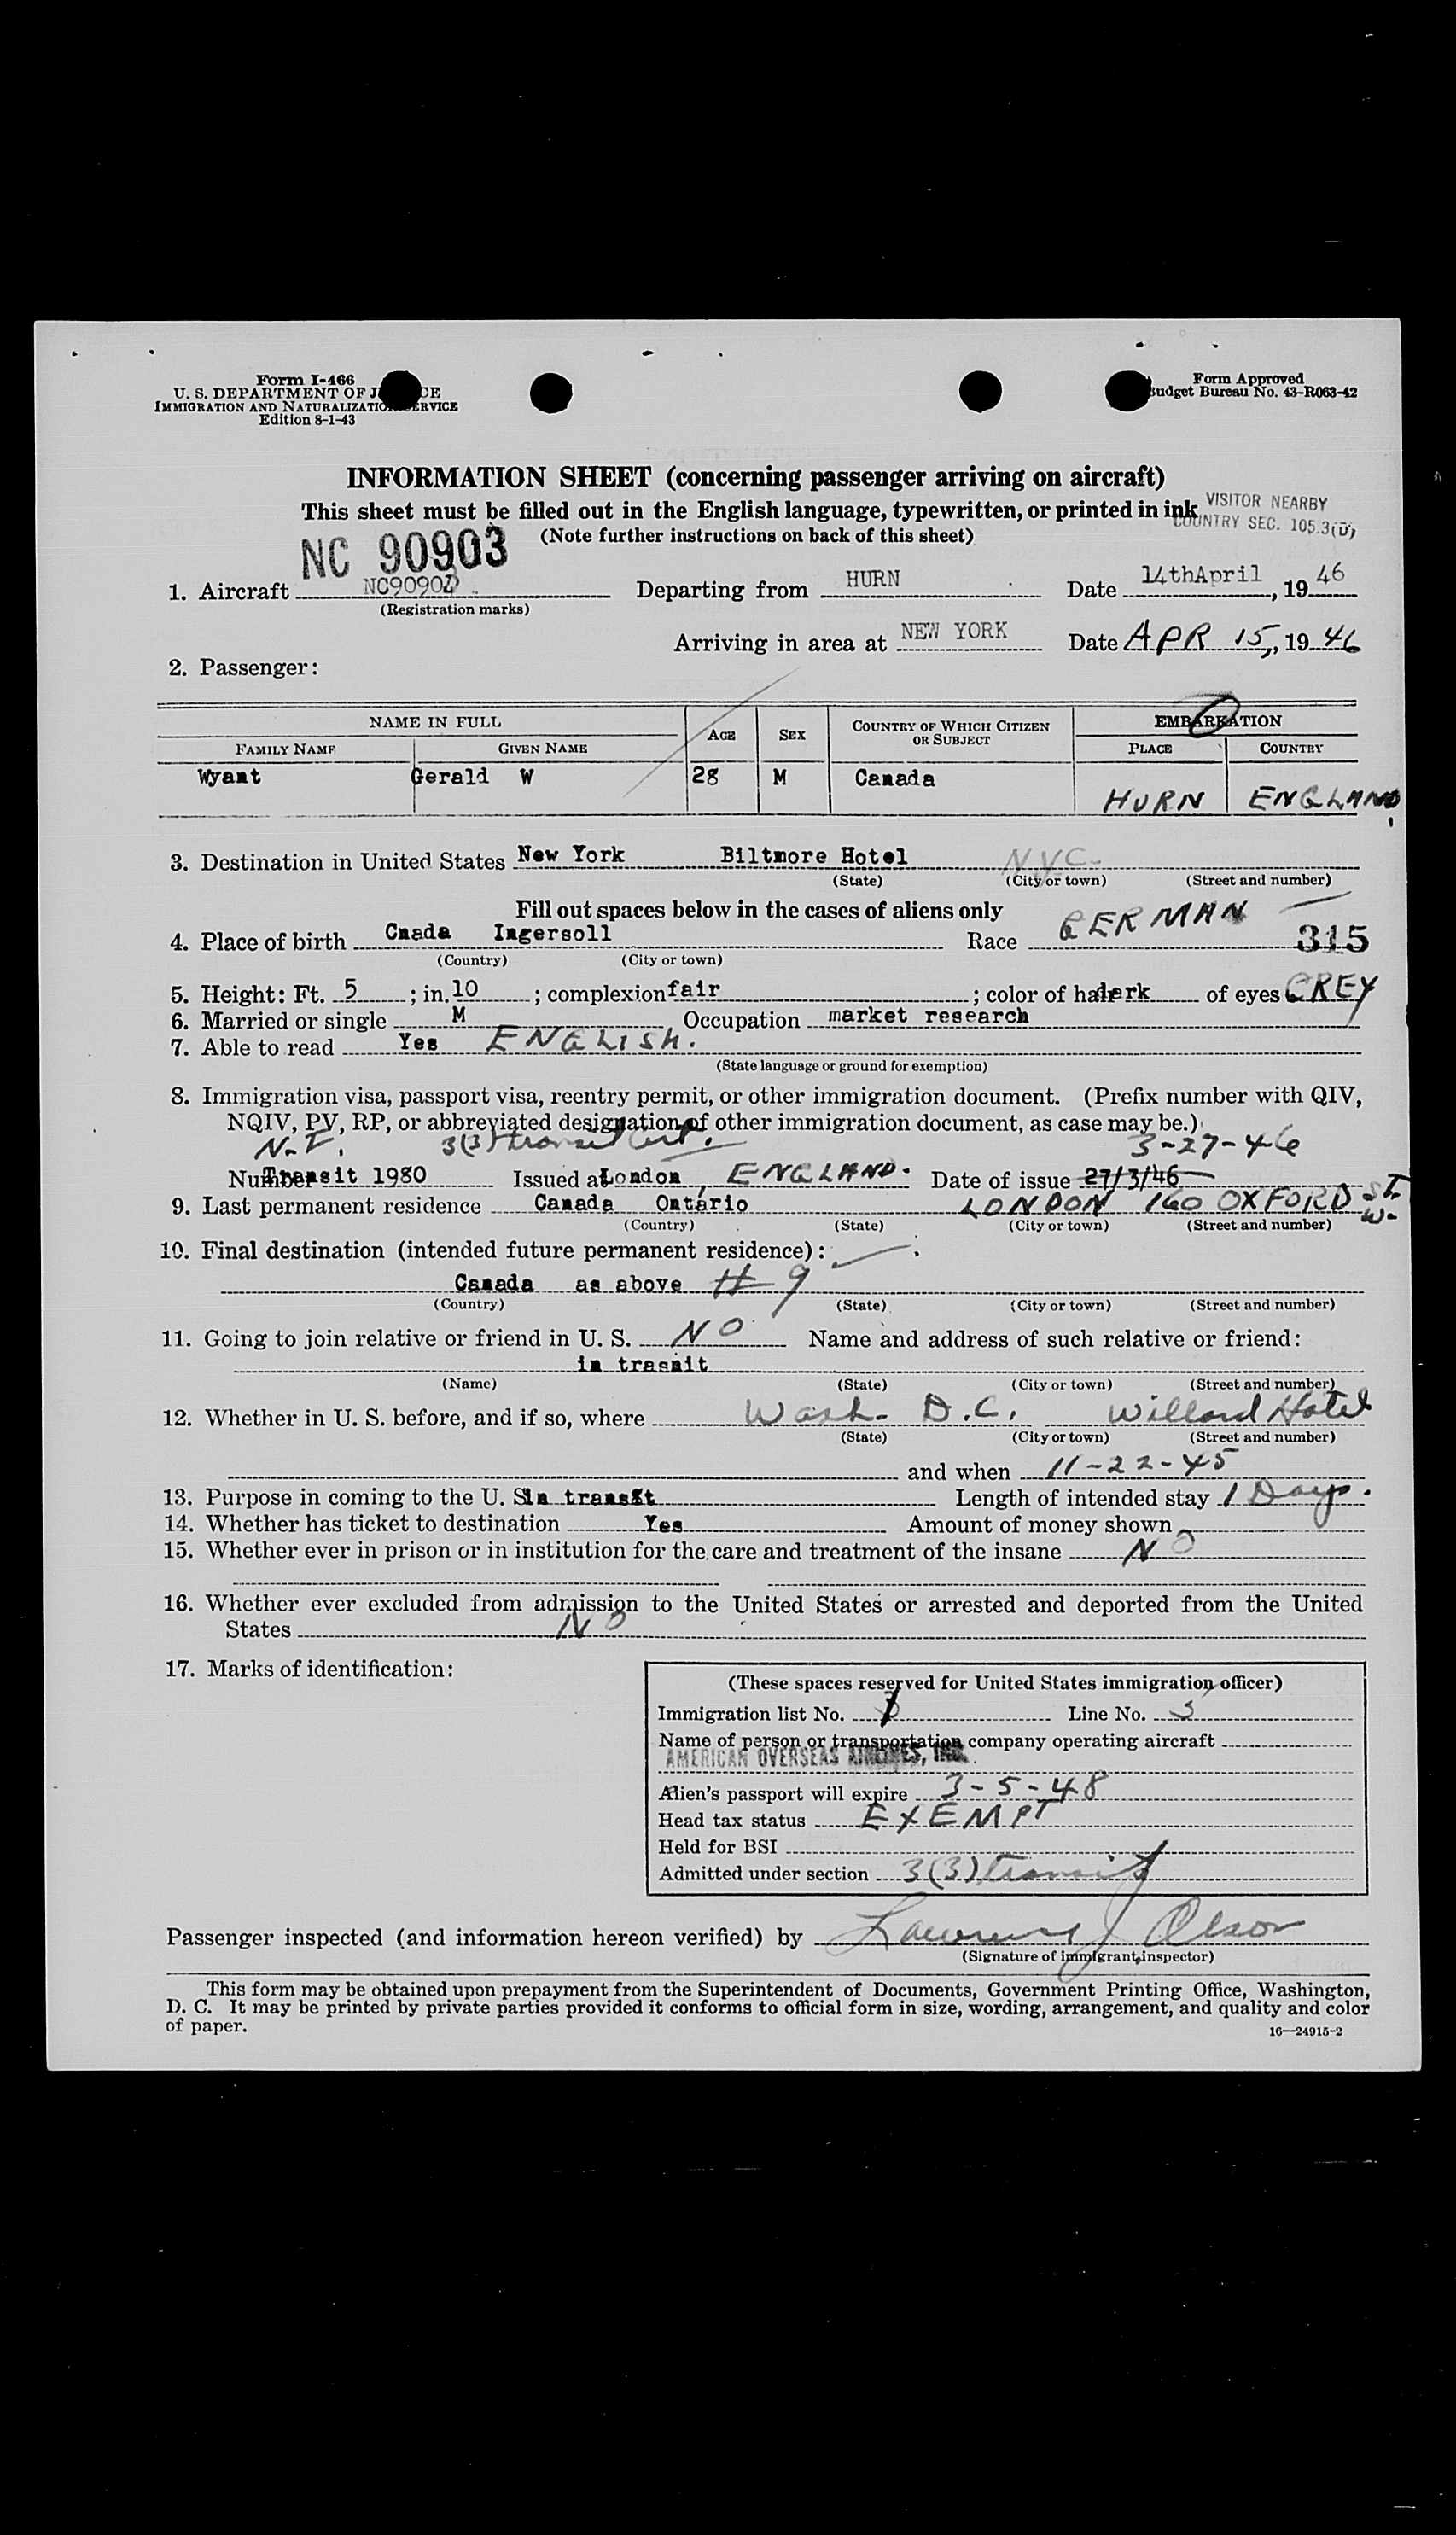 Form I-466
U. S. DEPARTMENT OF J CE
IMMIGRATION AND NATURALIZATION SERVICE
Edition 8-1-43
Form Approved
Budget Bureau No. 43-R063-42
INFORMATION SHEET (concerning passenger arriving on aircraft)
This sheet must be filled out in the English language, typewritten, or printed in ink
VISITOR NEARBY
COUNTRY SEC. 105.3(D)
(Note further instructions on back of this sheet)
NC 90903
1. Aircraft NC90903 Departing from HURN Date 14thApril, 1946
(Registration marks)
Arriving in area at NEW YORK Date APR 15, 1946
2. Passenger:
NAME IN FULL AGE SEX COUNTRY OF WHICH CITIZEN OR SUBJECT EMBARKATION
FAMILY NAME GIVEN NAME PLACE COUNTRY
Wyant Gerald W 28 M Canada HURN ENGLAND
3. Destination in United States New York Biltmore Hotel N.Y.C.
(State) (City or town) (Street and number)
Fill out spaces below in the cases of aliens only
4. Place of birth Cnada Ingersoll Race GERMAN 315
(Country) (City or town)
5. Height: Ft. 5 ; in. 10 ; complexion fair ; color of hair derk of eyes GREY
6. Married or single M Occupation market research
7. Able to read Yes ENGLISH.
(State language or ground for exemption)
8. Immigration visa, passport visa, reentry permit, or other immigration document. (Prefix number with QIV,
NQIV, PV, RP, or abbreviated designation of other immigration document, as case may be.)
N.I. 3(3) transit cert. 3-27-46
Number Transit 1980 Issued at London, ENGLAND. Date of issue 27/3/46
9. Last permanent residence Canada Ontario LONDON 160 OXFORD St. W.
(Country) (State) (City or town) (Street and number)
10. Final destination (intended future permanent residence):
Canada as above # 9
(Country) (State) (City or town) (Street and number)
11. Going to join relative or friend in U. S. NO Name and address of such relative or friend:
in trasnit
(Name) (State) (City or town) (Street and number)
12. Whether in U. S. before, and if so, where Wash. D.C. Willard Hotel
(State) (City or town) (Street and number)
and when 11-22-45
13. Purpose in coming to the U. S. in transit Length of intended stay 1 Days.
14. Whether has ticket to destination Yes Amount of money shown
15. Whether ever in prison or in institution for the care and treatment of the insane NO
16. Whether ever excluded from admission to the United States or arrested and deported from the United
States NO
17. Marks of identification:
(These spaces reserved for United States immigration officer)
Immigration list No. Line No. 5
Name of person or transportation company operating aircraft
AMERICAN OVERSEAS AIRLINES, INC.
Alien's passport will expire 3-5-48
Head tax status EXEMPT
Held for BSI
Admitted under section 3(3) transit
Passenger inspected (and information hereon verified) by Lawrence J Olson
(Signature of immigrant inspector)
This form may be obtained upon prepayment from the Superintendent of Documents, Government Printing Office, Washington,
D. C. It may be printed by private parties provided it conforms to official form in size, wording, arrangement, and quality and color
of paper.
16—24915-2